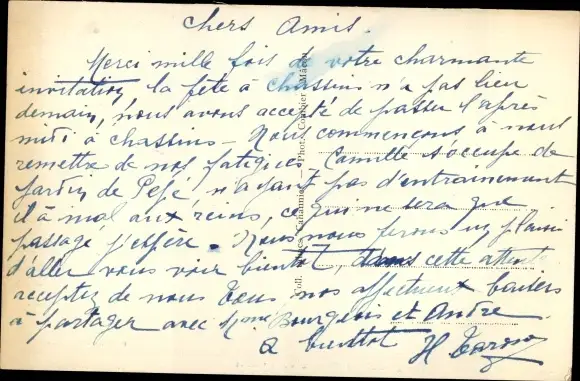 Chers Amis.
Merci mille fois de votre charmante
invitation, la fête à Chassins n'a pas lieu
demain, nous avons accepté de passer l'après
midi à Chassins – Nous commençons à nous
remettre de nos fatigues. Camille s'occupe de
jardin de Pépé, n'ayant pas d'entrainement
il à mal aux reins, ce qui ne sera que
passagé j'espère. Nous nous ferons un plaisir
d'aller vous voir bientôt, dans cette attente
acceptez de nous tous nos affectueux baisers
à partager avec Mme Bourgeois et André.
a bientôt H
Phot. Combier Mâcon
Coll.